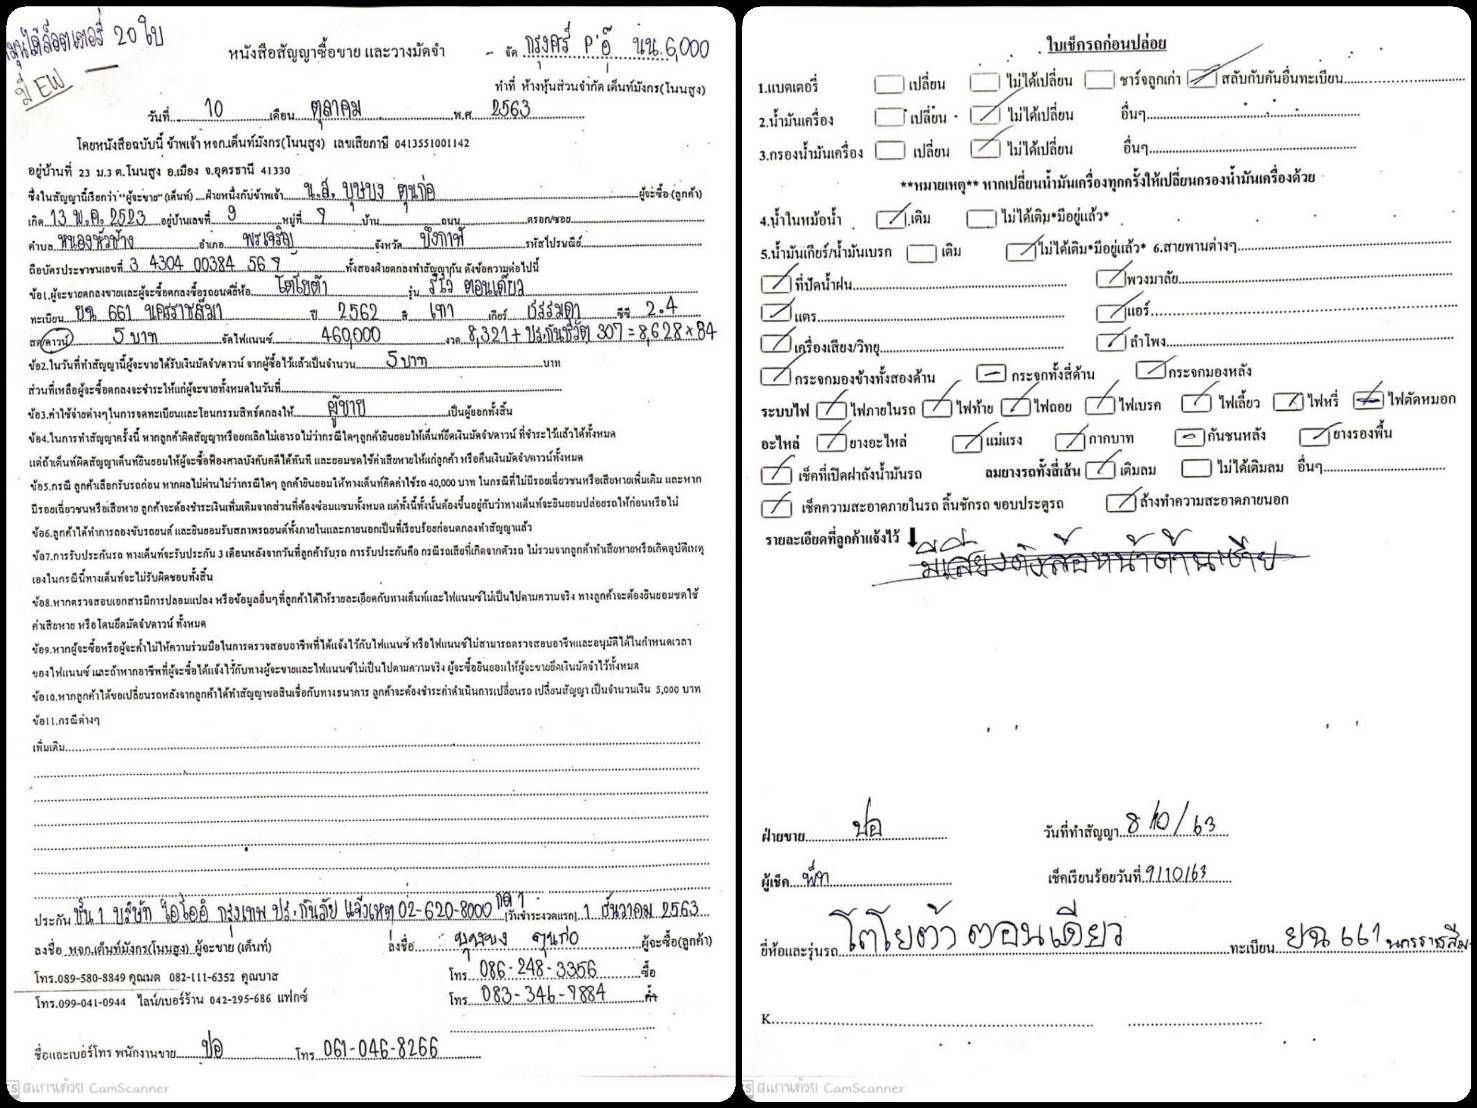 หมุนได้ล็อตเตอรี่ 20 ใบ
มี EW
หนังสือสัญญาซื้อขาย และวางมัดจำ - จัด กรุงศรี P'อู๋ นน.6,000
ทำที่ ห้างหุ้นส่วนจำกัด เต็นท์มังกร(โนนสูง)
วันที่ 10 เดือน ตุลาคม พ.ศ. 2563
โดยหนังสือฉบับนี้ ข้าพเจ้า หจก.เต็นท์มังกร(โนนสูง) เลขเสียภาษี 0413551001142
อยู่บ้านที่ 23 ม.3 ต.โนนสูง อ.เมือง จ.อุดรธานี 41330
ซึ่งในสัญญานี้เรียกว่า "ผู้จะขาย" (เต็นท์) ฝ่ายหนึ่งกับข้าพเจ้า น.ส. บุษบง ตุนก่อ ผู้จะซื้อ (ลูกค้า)
เกิด 13 พ.ค. 2523 อยู่บ้านเลขที่ 9 หมู่ที่ 7 บ้าน ถนน ตรอก/ซอย
ตำบล หนองหัวช้าง อำเภอ พรเจริญ จังหวัด บึงกาฬ รหัสไปรษณีย์
ถือบัตรประชาชนเลขที่ 3 4304 00384 56 7 ทั้งสองฝ่ายตกลงทำสัญญากัน ดังข้อความต่อไปนี้
ข้อ1.ผู้จะขายตกลงขายและผู้จะซื้อตกลงซื้อรถยนต์ยี่ห้อ โตโยต้า รุ่น รีโว่ ตอนเดียว
ทะเบียน ยน 661 นครราชสีมา ปี 2562 สี เทา เกียร์ ธรรมดา ซีซี 2.4
สด/ดาวน์ 5 บาท จัดไฟแนนซ์ 460,000 งวด 8,321 + ปร.กันชีวิต 307 = 8,628 x 84
ข้อ2.ในวันที่ทำสัญญานี้ผู้จะขายได้รับเงินมัดจำ/ดาวน์ จากผู้ซื้อไว้แล้วเป็นจำนวน 5 บาท บาท
ส่วนที่เหลือผู้จะซื้อตกลงจะชำระให้แก่ผู้จะขายทั้งหมดในวันที่
ข้อ3.ค่าใช้จ่ายต่างๆในการจดทะเบียนและโอนกรรมสิทธิ์ตกลงให้ ผู้ขาย เป็นผู้ออกทั้งสิ้น
ข้อ4.ในการทำสัญญาครั้งนี้ หากลูกค้าผิดสัญญาหรือยกเลิกไม่เอารถ ไม่ว่ากรณีใดๆลูกค้ายินยอมให้เต็นท์ยึดเงินมัดจำ/ดาวน์ ที่ชำระไว้แล้วได้ทั้งหมด
แต่ถ้าเต็นท์ผิดสัญญาเต็นท์ยินยอมให้ผู้จะซื้อฟ้องศาลบังคับคดีได้ทันที และยอมชดใช้ค่าเสียหายให้แก่ลูกค้า หรือคืนเงินมัดจำ/ดาวน์ทั้งหมด
ข้อ5.กรณี ลูกค้าเลือกรับรถก่อน หากผลไม่ผ่านไม่ว่ากรณีใดๆ ลูกค้ายินยอมให้ทางเต็นท์คิดค่าใช้รถ 40,000 บาท ในกรณีที่ไม่มีรอยเฉี่ยวชนหรือเสียหายเพิ่มเติม และหาก
มีรอยเฉี่ยวชนหรือเสียหาย ลูกค้าจะต้องชำระเงินเพิ่มเติมจากส่วนที่ต้องซ่อมแซมทั้งหมด แต่ทั้งนี้ทั้งนั้นต้องขึ้นอยู่กับว่าทางเต็นท์จะยินยอมปล่อยรถให้ก่อนหรือไม่
ข้อ6.ลูกค้าได้ทำการลองขับรถยนต์ และยินยอมรับสภาพรถยนต์ทั้งภายในและภายนอกเป็นที่เรียบร้อยก่อนตกลงทำสัญญาแล้ว
ข้อ7.การรับประกันรถ ทางเต็นท์จะรับประกัน 3 เดือนหลังจากวันที่ลูกค้ารับรถ การรับประกันคือ กรณีรถเสียที่เกิดจากตัวรถ ไม่รวมจากลูกค้าทำเสียหายหรือเกิดอุบัติเหตุ
เองในกรณีนี้ทางเต็นท์จะไม่รับผิดชอบทั้งสิ้น
ข้อ8.หากตรวจสอบเอกสารมีการปลอมแปลง หรือข้อมูลอื่นๆที่ลูกค้าได้ให้รายละเอียดกับทางเต็นท์และไฟแนนซ์ไม่เป็นไปตามความจริง ทางลูกค้าจะต้องยินยอมชดใช้
ค่าเสียหาย หรือโดนยึดมัดจำ/ดาวน์ ทั้งหมด
ข้อ9.หากผู้จะซื้อหรือผู้จะค้ำไม่ให้ความร่วมมือในการตรวจสอบอาชีพที่ได้แจ้งไว้กับไฟแนนซ์ หรือไฟแนนซ์ไม่สามารถตรวจสอบอาชีพและอนุมัติได้ในกำหนดเวลา
ของไฟแนนซ์ และถ้าหากอาชีพที่ผู้จะซื้อได้แจ้งไว้กับทางผู้จะขายและไฟแนนซ์ไม่เป็นไปตามความจริง ผู้จะซื้อยินยอมให้ผู้จะขายยึดเงินมัดจำไว้ทั้งหมด
ข้อ10.หากลูกค้าได้ขอเปลี่ยนรถหลังจากลูกค้าได้ทำสัญญาขอสินเชื่อกับทางธนาคาร ลูกค้าจะต้องชำระค่าดำเนินการเปลี่ยนรถ เปลี่ยนสัญญา เป็นจำนวนเงิน 5,000 บาท
ข้อ11.กรณีต่างๆ
เพิ่มเติม
ประกัน ชั้น 1 บริษัท ไอโออิ กรุงเทพ ปร.กันภัย แจ้งเหตุ 02-620-8000 กด 1 (วันชำระงวดแรก) 1 ธันวาคม 2563
ลงชื่อ หจก.เต็นท์มังกร(โนนสูง) ผู้จะขาย (เต็นท์) ลงชื่อ บุษบง ตุนก่อ ผู้จะซื้อ(ลูกค้า)
โทร.089-580-8849 คุณมด 082-111-6352 คุณบาส โทร 086-248-3356 ซื้อ
โทร.099-041-0944 ไลน์/เบอร์ร้าน 042-295-686 แฟกซ์ โทร. 083-346-9884 ค้ำ
ชื่อและเบอร์โทร พนักงานขาย ปอ โทร 061-046-8266
สแกนด้วย CamScanner
ใบเช็กรถก่อนปล่อย
1.แบตเตอรี่ เปลี่ยน ไม่ได้เปลี่ยน ชาร์จลูกเก่า สลับกับคันอื่นทะเบียน
2.น้ำมันเครื่อง เปลี่ยน ไม่ได้เปลี่ยน อื่นๆ
3.กรองน้ำมันเครื่อง เปลี่ยน ไม่ได้เปลี่ยน อื่นๆ
**หมายเหตุ** หากเปลี่ยนน้ำมันเครื่องทุกครั้งให้เปลี่ยนกรองน้ำมันเครื่องด้วย
4.น้ำในหม้อน้ำ เติม ไม่ได้เติม*มีอยู่แล้ว*
5.น้ำมันเกียร์/น้ำมันเบรก เติม ไม่ได้เติม*มีอยู่แล้ว* 6.สายพานต่างๆ
ที่ปัดน้ำฝน พวงมาลัย
แตร แอร์
เครื่องเสียง/วิทยุ ลำโพง
กระจกมองข้างทั้งสองด้าน กระจกทั้งสี่ด้าน กระจกมองหลัง
ระบบไฟ ไฟภายในรถ ไฟท้าย ไฟถอย ไฟเบรค ไฟเลี้ยว ไฟหรี่ ไฟตัดหมอก
อะไหล่ ยางอะไหล่ แม่แรง กากบาท กันชนหลัง ยางรองพื้น
เช็คที่เปิดฝาถังน้ำมันรถ ลมยางรถทั้งสี่เส้น เติมลม ไม่ได้เติมลม อื่นๆ
เช็คความสะอาดภายในรถ ลิ้นชักรถ ขอบประตูรถ ล้างทำความสะอาดภายนอก
รายละเอียดที่ลูกค้าแจ้งไว้
มีเสียงดังล้อหน้าด้านซ้าย
ฝ่ายขาย ปอ วันที่ทำสัญญา 8/10/63
ผู้เช็ค พัท เช็คเรียบร้อยวันที่ 9/10/63
ยี่ห้อและรุ่นรถ โตโยต้า ตอนเดียว ทะเบียน ยน 661 นครราชสีมา
K
สแกนด้วย CamScanner